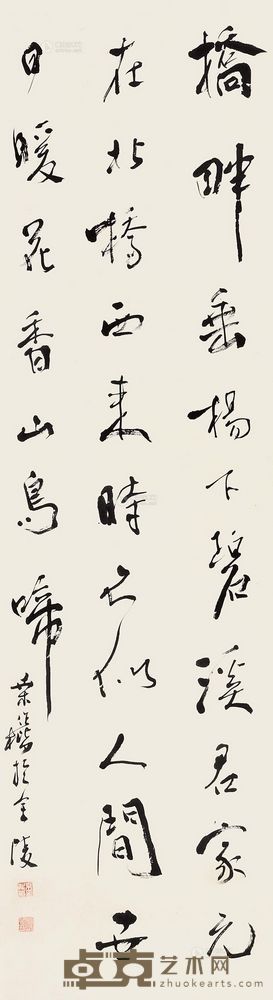 橋畔垂楊下碧溪君家元
在北橋西來時不似人間世
日暖花香山鳥啼
於金陵
卓克艺术网
zhuokearts.com